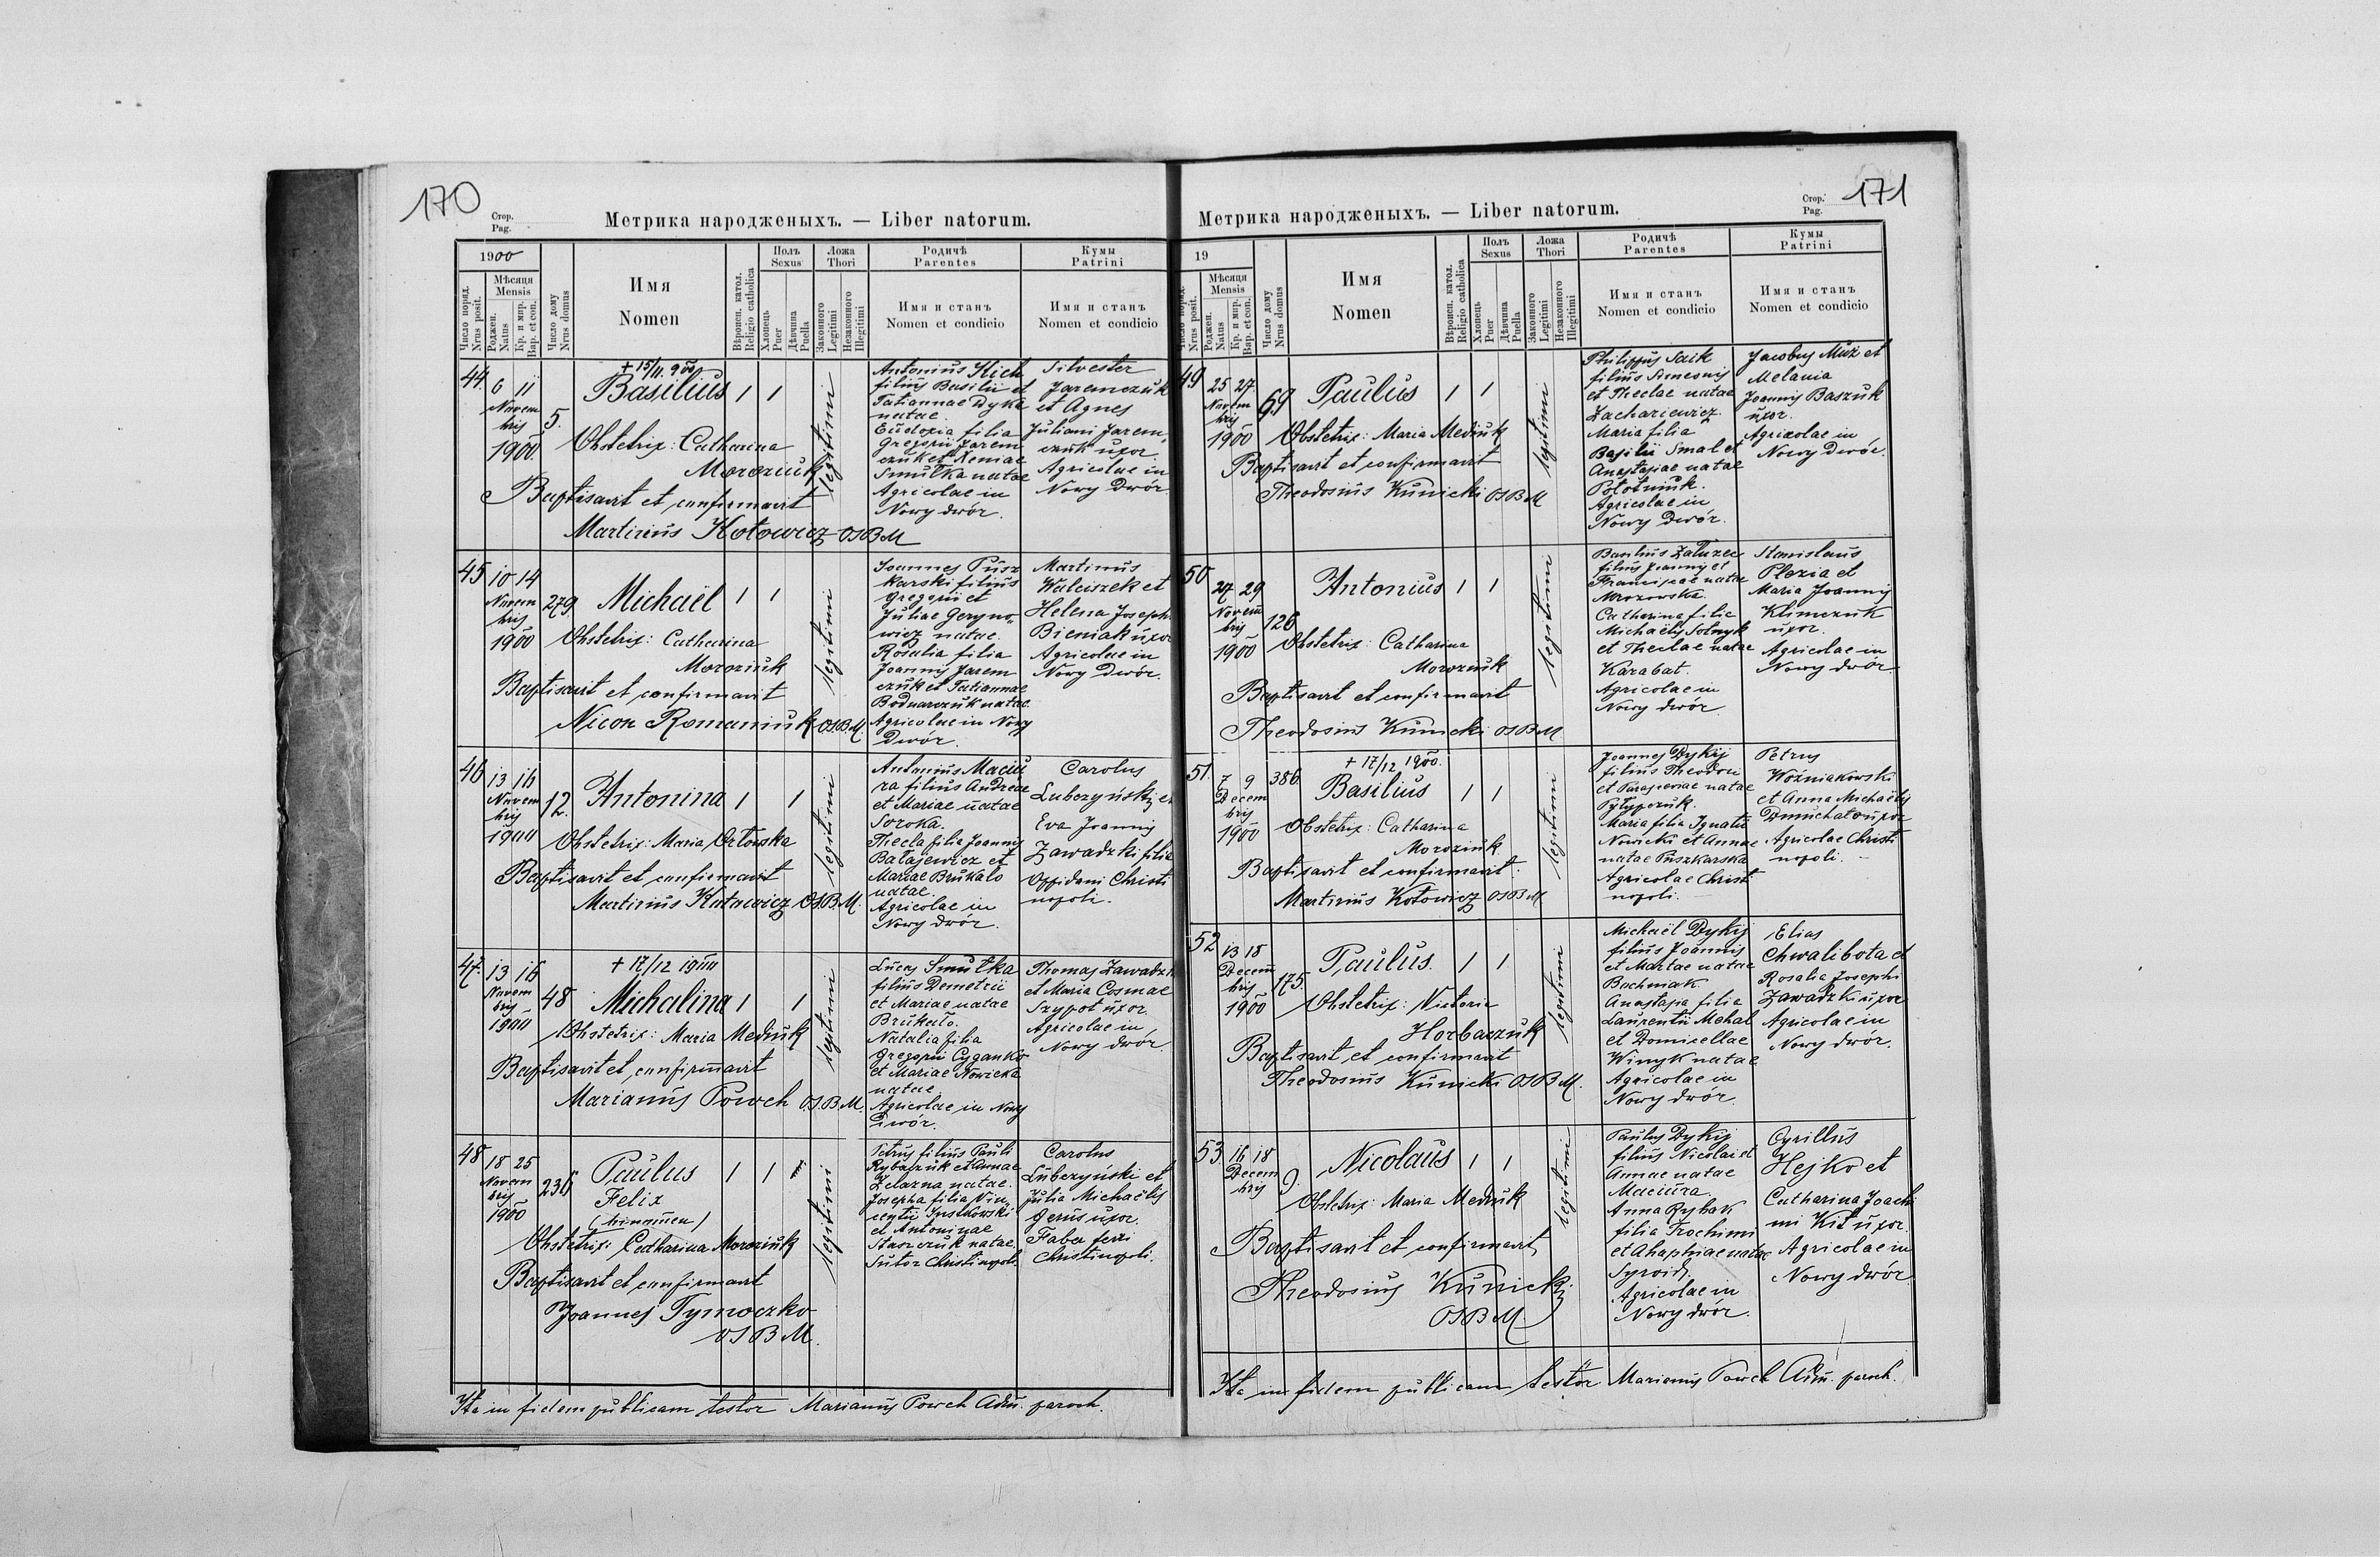 170
Стор.
Pag.
Метрика народженыхъ. — Liber natorum.
1900
Число поряд.
Nrus posit.
Мѣсяця
Mensis
Роджен.
Natus
Кр. и мир.
Bap. et con.
Число дому
Nrus domus
Имя
Nomen
Вѣроисп. катол.
Religio catholica
Полъ
Sexus
Хлопець
Puer
Дѣвчина
Puella
Ложа
Thori
Законного
Legitimi
Незаконного
Illegitimi
Родичѣ
Parentes
Имя и станъ
Nomen et condicio
Кумы
Patrini
Имя и станъ
Nomen et condicio
44
6 11
Novem
bris
1900
5.
+ 15/11. 900
Basilius 1 1
Obstetrix: Catharina
Moroziuk
Baptisavit et confirmavit
Martinus Kotowicz OSBM
legitimi
Antonius
filius Basilii et
Tatiannae Dyka
natae.
Eudoxia filia
Gregorii Jarem
czuk et Xeniae
Smulka natae
Agricolae in
Nowy dwór.
Silvester
Jaremczuk
et Agnes
Juliani Jarem,
czuk uxor.
Agricolae in
Nowy Dwór
45
10 14
Novem
bris
1900
279
Michaël 1 1
Obstetrix: Catharina
Moroziuk
Baptisavit et confirmavit
Nicon Romaniuk OSB.M.
legitimi
Joannes Pusz
karski filius
Gregorii et
Juliae Geryno„
wicz natae.
Rosalia filia
Joannis Jarem
czuk et Tatiannae
Bodnarczuk natae
Agricolae in Nowy
Dwór.
Martinus
Walciszek et
Helena Josephi
Bieniak uxor
Agricolae in
Nowy Dwór.
46
13 16
Novem
bris
1900
12.
Antonina 1 1
Obstetrix: Maria Orłowska
Baptisavit et confirmavit
Martinus Kotowicz OSB.M.
legitimi
Antonius Maciu
ra filius Andreae
et Mariae natae
Soroka.
Thecla filia Joannis
Bałajewicz et
Mariae Brukało
natae.
Agricolae in
Nowy dwór.
Carolus
Lubczyński et
Eva Joannis
Zawadzki filia
Oppidani Christi
nopoli.
47.
13 16
Novem
bris
1900
48
+ 17/12 1900
Michalina 1 1
Obstetrix: Maria Mediuk
Baptisavit et confirmavit
Marianus Powch O.S.B.M.
legitimi
Lucas Smulka
filius Demetrii
et Mariae natae
Brukało.
Natalia filia
Gregorii Cyganko
et Mariae Nowicka
natae.
Agricolae in Nowy
Dwór.
Thomas Zawadzki
et Maria Cosmae
Szypot uxor
Agricolae in
Nowy dwór
48
18 25
Novem
bris
1900
236
Paulus 1 1
Felix
(binomen)
Obstetrix: Catharina Moroziuk
Baptisavit et confirmavit
Joannes Tymoczko
OSBM.
legitimi
Petrus filius Pauli
Rybaczuk et Annae
Żelazna natae.
Josepha filia Vin„
centii Justkowski
et Antoninae
Staszczuk natae.
Sutor Christinopoli.
Carolus
Lubczyński et
Julia Michaëlis
Gerus uxor.
Faber ferri
Christinopoli.
Ita in fidem publicam testor Marianus Powch Adm. paroch.
171
Стор.
Pag.
Метрика народженыхъ. — Liber natorum.
19
Число поряд.
Nrus posit.
Мѣсяця
Mensis
Роджен.
Natus
Кр. и мир.
Bap. et con.
Число дому
Nrus domus
Имя
Nomen
Вѣроисп. катол.
Religio catholica
Полъ
Sexus
Хлопець
Puer
Дѣвчина
Puella
Ложа
Thori
Законного
Legitimi
Незаконного
Illegitimi
Родичѣ
Parentes
Имя и станъ
Nomen et condicio
Кумы
Patrini
Имя и станъ
Nomen et condicio
49
25 27
Novem
bris
1900
69
Paulus 1 1
Obstetrix: Maria Mediuk
Baptisavit et confirmavit
Theodosius Kunicki OSBM
legitimi
Philippus Saik
filius Simeonis
et Theclae natae
Zachariewicz.
Maria filia
Basilii Smal et
Anastasiae natae
Połotniuk.
Agricolae in
Nowy Dwór.
Jacobus Muz et
Melania
Joannis Baszuk
uxor.
Agricolae in
Nowy Dwór.
50
27 29
Novem
bris
1900
126
Antonius 1 1
Obstetrix: Catharina
Moroziuk
Baptisavit et confirmavit
Theodosius Kunicki OSBM
legitimi
Basilius Załuzec
filius Joannis et
Franciscae natae
Mrozowska.
Catharina filia
Michaëlis Sotnyk
et Theclae natae
Karabat.
Agricolae in
Nowy dwór
Stanislaus
Plozia et
Maria Joannis
Klimczuk
uxor.
Agricolae in
Nowy dwór
51.
7 9
Decem
bris
1900
386
+ 17/12 1900.
Basilius 1 1
Obstetrix: Catharina
Moroziuk
Baptisavit et confirmavit.
Martinus Kotowicz OSBM
legitimi
Joannes Dykij
filius Theodori
et Parasceviae natae
Pylypczuk.
Maria filia Ignatii
Nowicki et Annae
natae Puszkarska
Agricolae Christi
nopoli.
Petrus
Woźniakowski
et Anna Michaëlis
uxor
Agricolae Christi
nopoli.
52
13 18
Decem
bris
1900
175.
Paulus. 1 1
Obstetrix: Victoria
Horbaczuk
Baptisavit et confirmavit
Theodosius Kunicki OSBM.
legitimi
Michaël Dykij
filius Joannis
et Martae natae
Bochniak
Anastasia filia
Laurentii Mohal
et Domicellae
Winyk natae
Agricolae in
Nowy dwór.
Elias
Chwalibota et
Rosalia Josephi
Zawadzki uxor
Agricolae in
Nowy dwór.
53.
16 18
Decem
bris
9.
Nicolaus 1 1
Obstetrix: Maria Mediuk
Baptisavit et confirmavit
Theodosius Kunickij
OSBM.
legitimi
Paulus Dykij
filius Nicolai et
Annae natae
Maciura
Anna Rybak
filia Trochimi
et Ahaphiae natae
Syroid.
Agricolae in
Nowy dwór.
Cyrillus
Hejko et
Catharina Joachi
mi Kit uxor.
Agricolae in
Nowy dwór
Ita in fidem publicam testor Marianus Powch Adm. paroch.